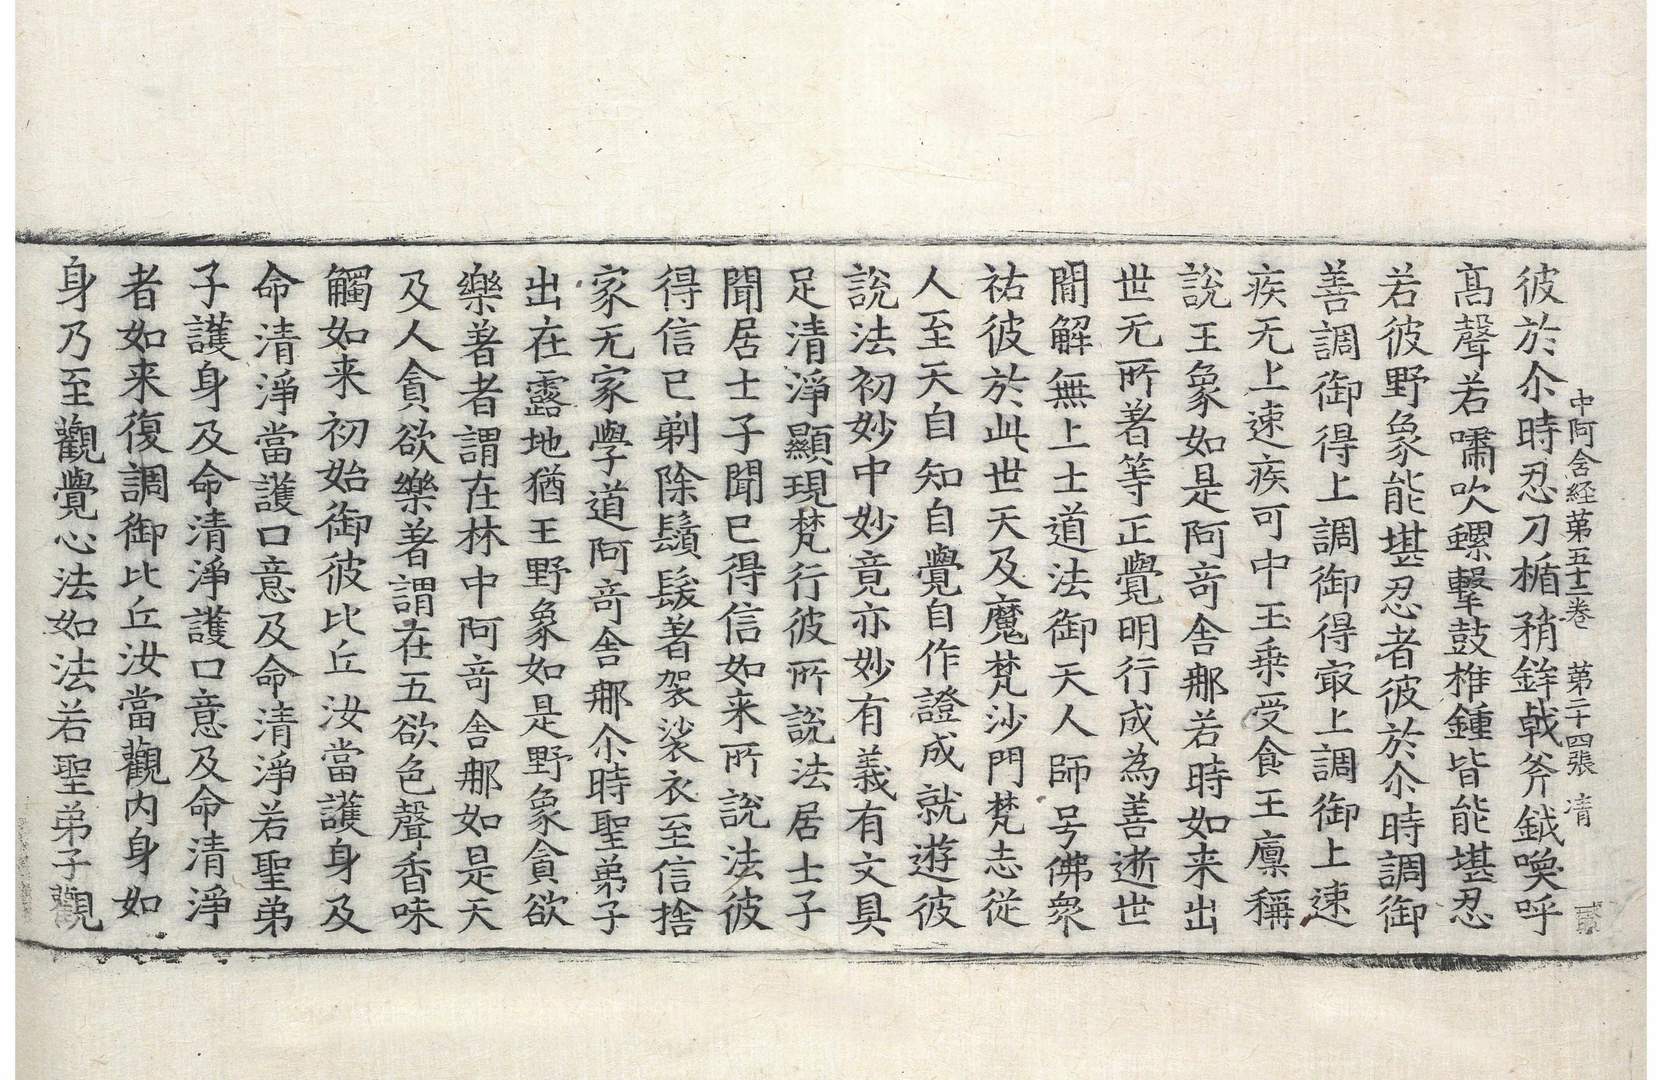 中阿含経苐五十二卷 苐二十四張 清
彼於尒時忍刀楯矟鉾戟斧鉞喚呼
髙聲若嘯吹螺擊鼓椎鍾皆能堪忍
若彼野象能堪忍者彼於尒時調御
善調御得上調御得㝡上調御上速
疾无上速疾可中王乗受食王廪稱
說王象如是阿竒舍郍若時如来出
世无所著等正覺明行成為善逝世
間解無上士道法御天人師号佛衆
祐彼於此世天及魔梵沙門梵志從
人至天自知自覺自作證成就遊彼
說法初妙中妙竟亦妙有義有文具
足清淨顯現梵行彼所說法居士子
聞居士子聞已得信如来所說法彼
得信已剃除鬚髮著袈裟衣至信捨
家无家學道阿竒舍郍尒時聖弟子
出在露地猶王野象如是野象貪欲
樂著者謂在林中阿竒舍郍如是天
及人貪欲樂著謂在五欲色聲香味
觸如来初始御彼比丘汝當護身及
命清淨當護口意及命清淨若聖弟
子護身及命清淨護口意及命清淨
者如来復調御比丘汝當觀内身如
身乃至觀覺心法如法若聖弟子觀